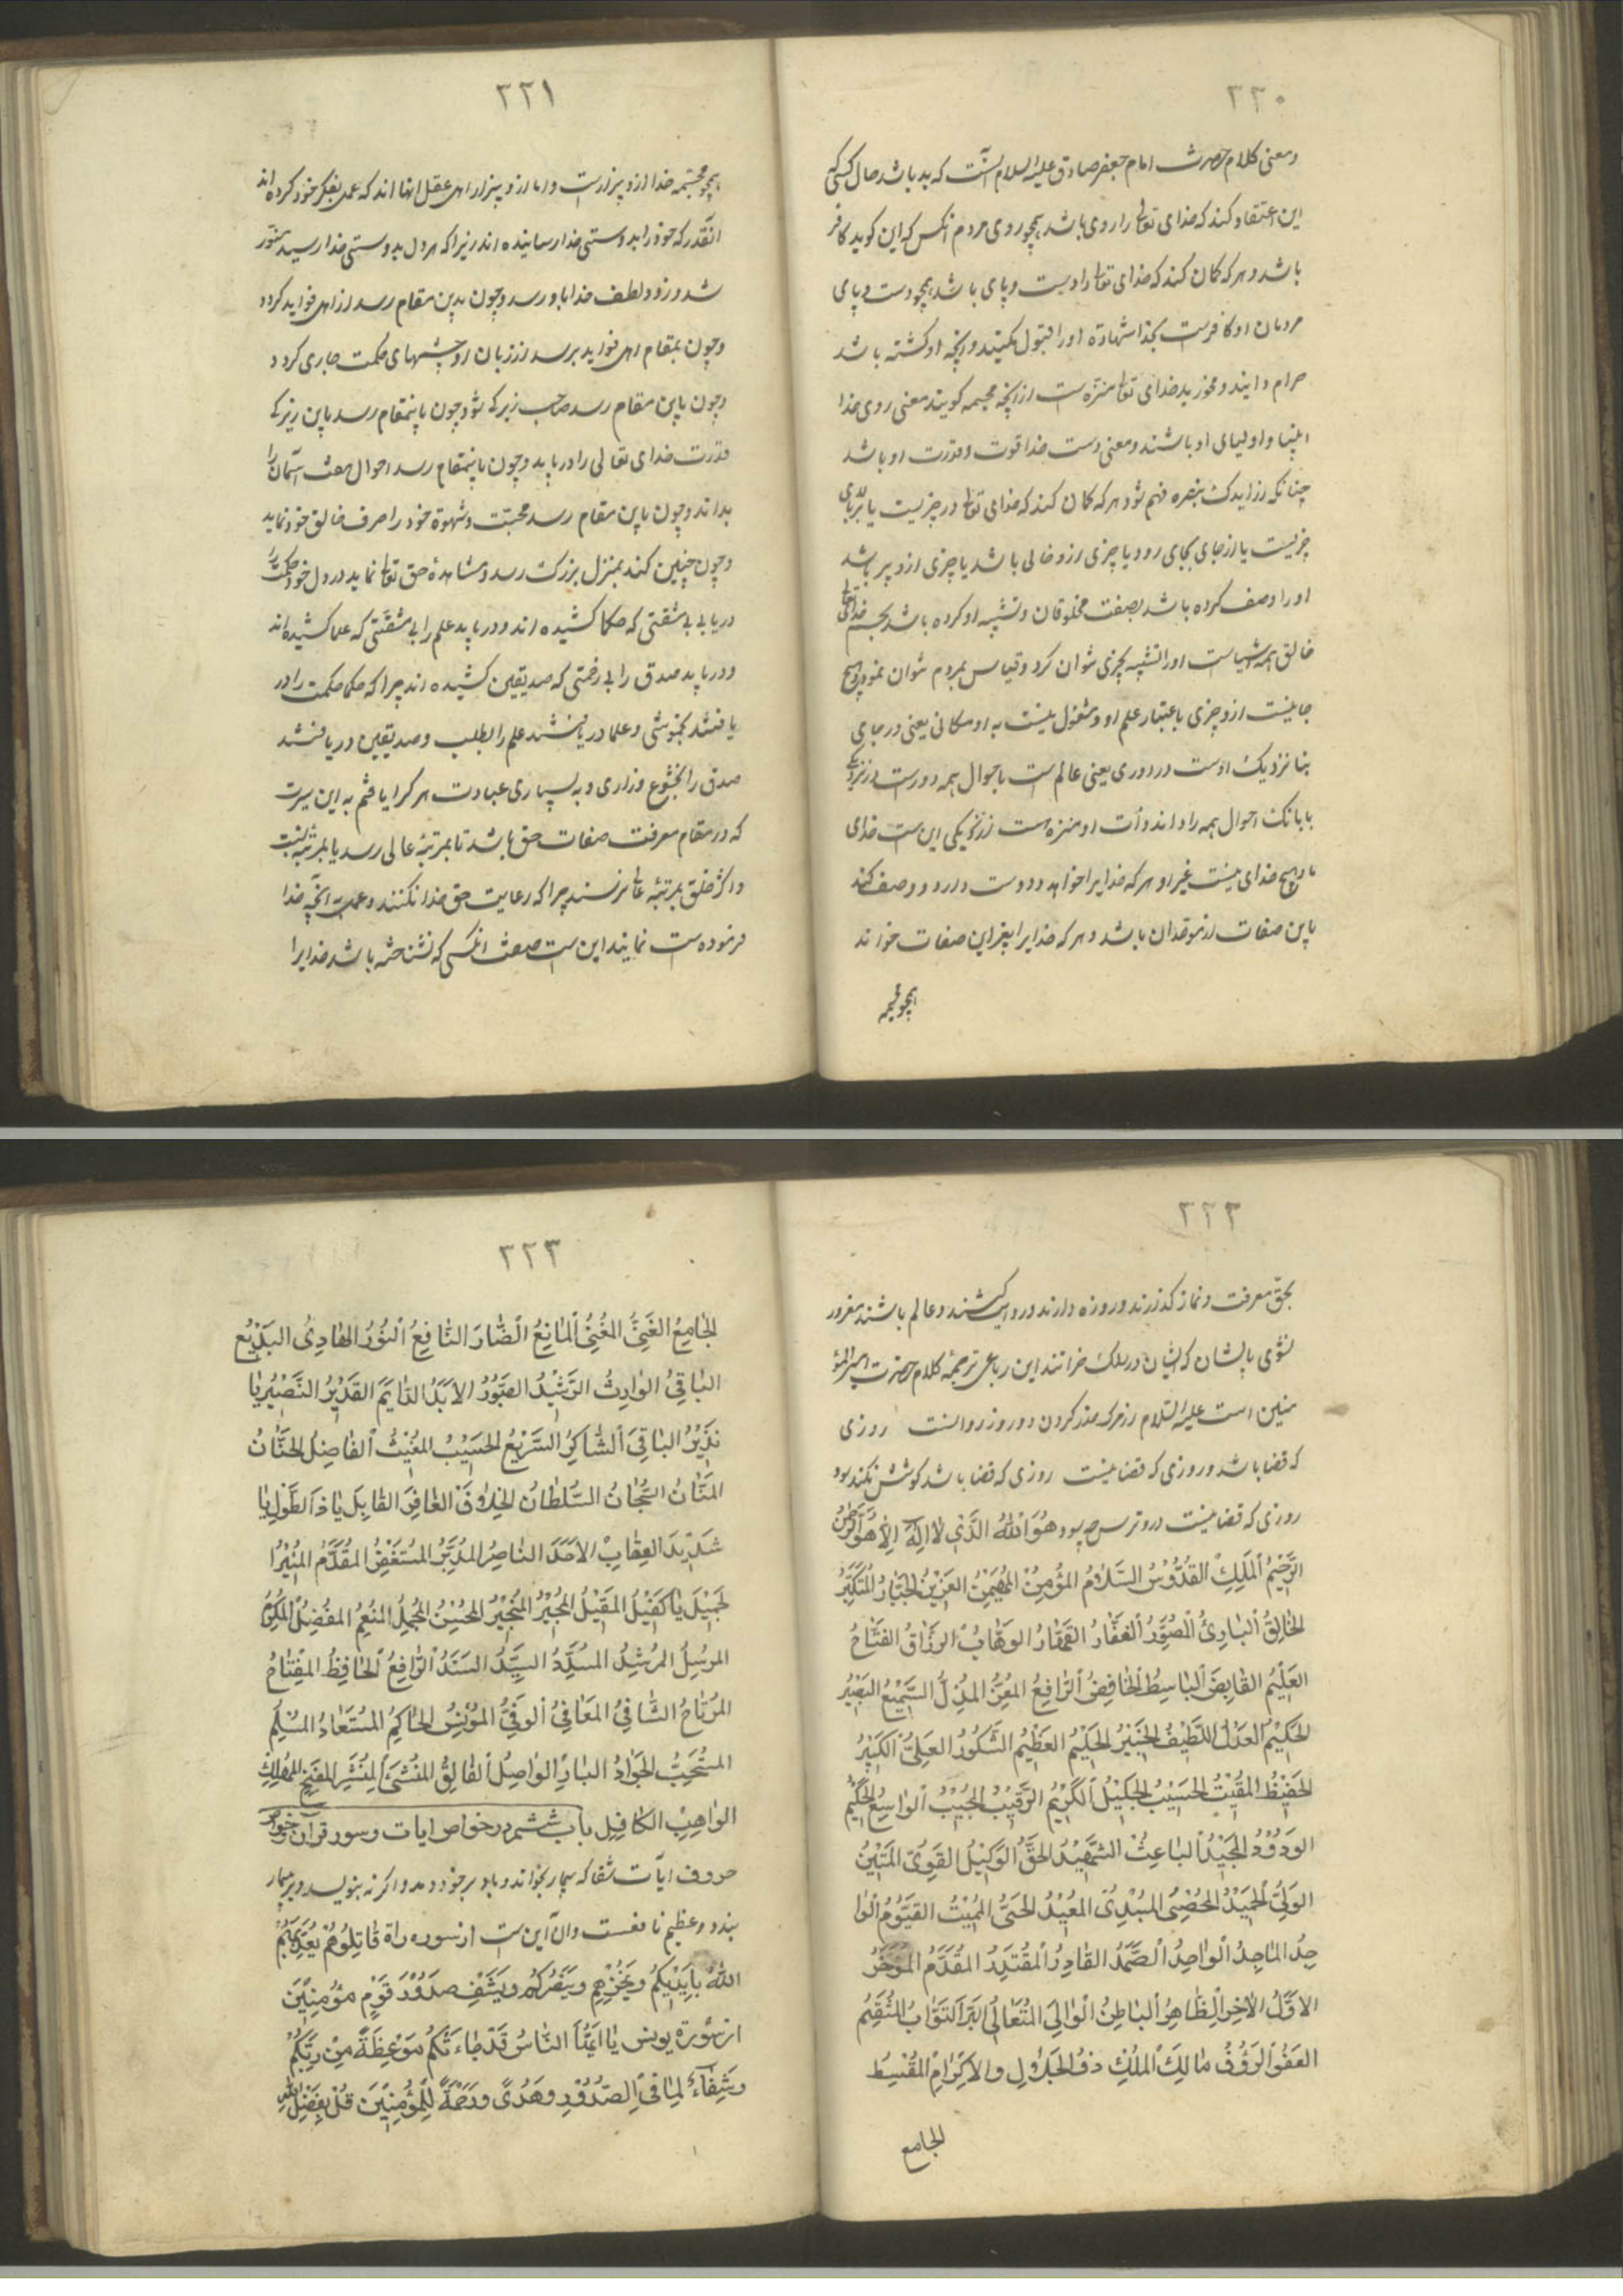 ٣٢٠
ومعنی کلام حضرت امام جعفر صادق علیه السلام اینست که بد باشد حال کسی که
این اعتقاد کند که خدای تعالی را روی باشد همچو روی مردم انکس که این کوید کافر
باشد و هر که کمان کند که خدای تعالی را دست و پای باشد همچو دست و پای
مردمان او کافرست بخدا شهادة او را قبول مکنید و انچه او کشته باشد
حرام دانید و مخورید خدای تعالی منزه است از انچه مجسمه کویند معنی روی خدا
انبیا و اولیای او باشند و معنی دست خدا قوت و قدرت او باشد
چنانکه از ایدک بنصره فهم شود هر که کمان کند که خدای تعالی در چیزیست یا بر بالای
چیزیست یا از جای بجای رود یا چیزی ازو خالی باشد یا چیزی ازو پر باشد
او را وصف کرده باشد بصفت مخلوقان و تشبیه او کرده باشد بجسم خدای تعالی
خالق همه اشیاست او را تشبیه بچیزی نتوان کرد و قیاس بمردم نتوان نمود و هیچ
جا نیست ازو چیزی باعتبار علم او و مشغول نیست به او مکانی یعنی در جای
بنا نزدیک اوست در دوری یعنی عالم است باحوال همه دورست در نزدیکی
با بانک احوال همه را داند و ذات او منزه است از نزدیکی این ست خدای
ما و هیچ خدای نیست غیر او هر که خدایرا خواهد و دوست دارد و وصف کند
باین صفات از موحدان باشد و هر که خدایرا بغیر این صفات خواند
همچو مجسمه
٣٢١
همچو مجسمه خدا ازو بیزارست و ما ازو بیزار اهل عقل انها اند که عمل بفکر خود کرده اند
انقدر که خود را بدوستی خدا رسانیده اند زیرا که هر دل بدوستی خدا رسید منور
شد و زود لطف خدا باو رسد و چون بدین مقام رسد از اهل فواید کردد
و چون بمقام اهل فواید برسد از زبان او چشمهای حکمت جاری کردد
و چون باین مقام رسد صاحب زیرکی شود و چون باینمقام رسد باین زیرکی
قدرت خدای تعالی را دریابد و چون باینمقام رسد احوال هفت آسمان را
بداند و چون باین مقام رسد محبت و شهوة خود را صرف خالق خود نماید
و چون چنین کند بمنزل بزرک رسد و مشاهدهٔ حق تعالی نماید در دل خود حکمت را
دریابد بی مشقتی که حکما کشیده اند و دریابد علم را بی مشقتی که علما کشیده اند
و دریابد صدق را بی زحمتی که صدیقین کشیده اند چرا که حکما حکمت را در
یافتند بخموشی و علما دریافتند علم را بطلب و صدیقین دریافتند
صدق را بخشوع و زاری و به بسیاری عبادت هر کرا یافتم به این سیرت
که در مقام معرفت صفات حق باشد تا بمرتبهٔ عالی رسد یا بمرتبه پست
و اکثر خلق بمرتبهٔ عالی نرسند چرا که رعایت حق خدا نکنند و عمل به انچه خدا
فرموده است نمایند این ست صفت انکسی که نشناخته باشد خدایرا
٣٢٢
بحق معرفت و نماز کذارند و روزه دارند و روایت کنند و عالم باشند مغرور
نشوی بایشان که ایشان در سلک خرانند این رباعی ترجمهٔ کلام حضرت امیرالمؤ
منین است علیه السلام از مرک حذر کردن دو روز روا نیست روزی
که قضا باشد و روزی که قضا نیست روزی که قضا باشد کوشش نکند سود
روزی که قضا نیست درو ترس چه بود هُوَ اللهُ الَّذِی لا اِلٰهَ اِلّا هُوَ الرَّحْمٰنُ
الرَّحِیْمُ الْمَلِكُ القُدُّوْسُ السَّلَامُ المُؤْمِنُ المُهَیْمِنُ العَزِیْزُ الجَبَّارُ المُتَكَبِّرُ
الخَالِقُ البَارِئُ المُصَوِّرُ الغَفَّارُ القَهَّارُ الوَهَّابُ الرَزَّاقُ الفَتَّاحُ
العَلِیْمُ القَابِضُ البَاسِطُ الخَافِضُ الرَافِعُ المُعِزُّ المُذِلُّ السَّمِیْعُ البَصِیْرُ
الحَكِیْمُ العَدْلُ اللَّطِیْفُ الخَبِیْرُ الحَلِیْمُ العَظِیْمُ الشَّكُوْرُ العَلِیُّ الكَبِیْرُ
الحَفِیْظُ المُقِیْتُ الحَسِیْبُ الجَلِیْلُ الكَرِیْمُ الرَّقِیْبُ المُجِیْبُ الوَاسِعُ الحَكِیْمُ
الوَدُوْدُ المَجِیْدُ البَاعِثُ الشَّهِیْدُ الحَقُّ الوَكِیْلُ القَوِیُّ المَتِیْنُ
الوَلِیُّ الحَمِیْدُ المُحْصِی المُبْدِئُ المُعِیْدُ المُحْیِی المُمِیْتُ القَیُّوْمُ الوَا
جِدُ المَاجِدُ الوَاحِدُ الصَّمَدُ القَادِرُ المُقْتَدِرُ المُقَدِّمُ المُؤَخِّرُ
الاَوَّلُ الاٰخِرُ الظَّاهِرُ البَاطِنُ الوَالِیُ المُتَعَالِیُ البَرُّ التَوَّابُ المُنْتَقِمُ
العَفُوُّ الرَؤُفُ مَالِكُ المُلْكِ ذُو الجَلَالِ وَالاِكْرَامِ المُقْسِطُ
الجامع
٣٢٣
الجَامِعُ الغَنِیُّ المُغْنِیُ المَانِعُ الضَّارُ النَّافِعُ النُّوْرُ الهَادِیُ البَدِیْعُ
البَاقِیُ الوَارِثُ الرَّشِیْدُ الصَبُوْرُ الاَبَدُ الدَّایِمُ القَدِیْرُ النَّصِیْرُ یَا
نَذِیْرُ البَاقِیَ الشَّاكِرُ السَّرِیْعُ الحَسِیْبُ المُغِیْثُ الفَاضِلُ الحَنَّانُ
المَنَّانُ السُّبْحَانُ السُّلْطَانُ الخَلَّاقُ الغَافِرَ القَابِلَ یَا ذَا الطَّوْلِ یَا
شَدِیْدَ العِقَابِ الاَحَدَ النَّاصِرُ المُدَبِّرُ المُسْتَغْفَرُ المُقَدَّمُ المُنِیْرُ
لجَمِیْلَ یَا كَفِیْلُ المُقِیْلُ المُجِیْرُ المُخْبِرُ المُحْسِنُ المُجْمِلُ المُنْعِمُ المُفْضِلُ المُكْرِمُ
المُرْسِلُ المُرْشِدُ المُسَدِّدُ السَیِّدُ السَنَدُ الرَّافِعُ الحَافِظُ المِفْتَاحُ
المُرْتَاحُ الشَّافِیُ المُعَافِیُ الوَفِیُّ المُوْنِسُ الحَاكِمُ المُسْتَعَاذُ المُسْلِمُ
المُسْتَحَبُّ الجَوَادُ البَارُّ الوَاصِلُ الفَالِقُ المُنْشِئُ المُنَشِّرُ المُفَتِّحُ المُهْلِكُ
الوَاهِبُ الكَافِل باب ششم در خواص ایات و سور قران و خواص
حروف ایات شفا که بیمار بخواند و باد بر خود دمد و اکر نه بنویسد و بر بیمار
بندد و عظیم نافعست و ان این ست از سوره براة قَاتِلُوهُمْ یُعَذِّبْهُمُ
اللهُ بِاَیْدِیْكُمْ وَیُخْزِهِمْ وَیَنْصُرْكُمْ وَیَشْفِ صُدُوْرَ قَوْمٍ مُؤْمِنِیْنَ
از سُورَة یونس یَا اَیُّهَا النَّاسُ قَدْ جَاءَتْكُمْ مَوْعِظَةٌ مِنْ رَبِّكُمْ
وَشِفَآءٌ لِمَا فِی الصُّدُوْرِ وَهُدًی وَرَحْمَةٌ لِلْمُؤْمِنِیْنَ قُلْ بِفَضْلِ اللهِ